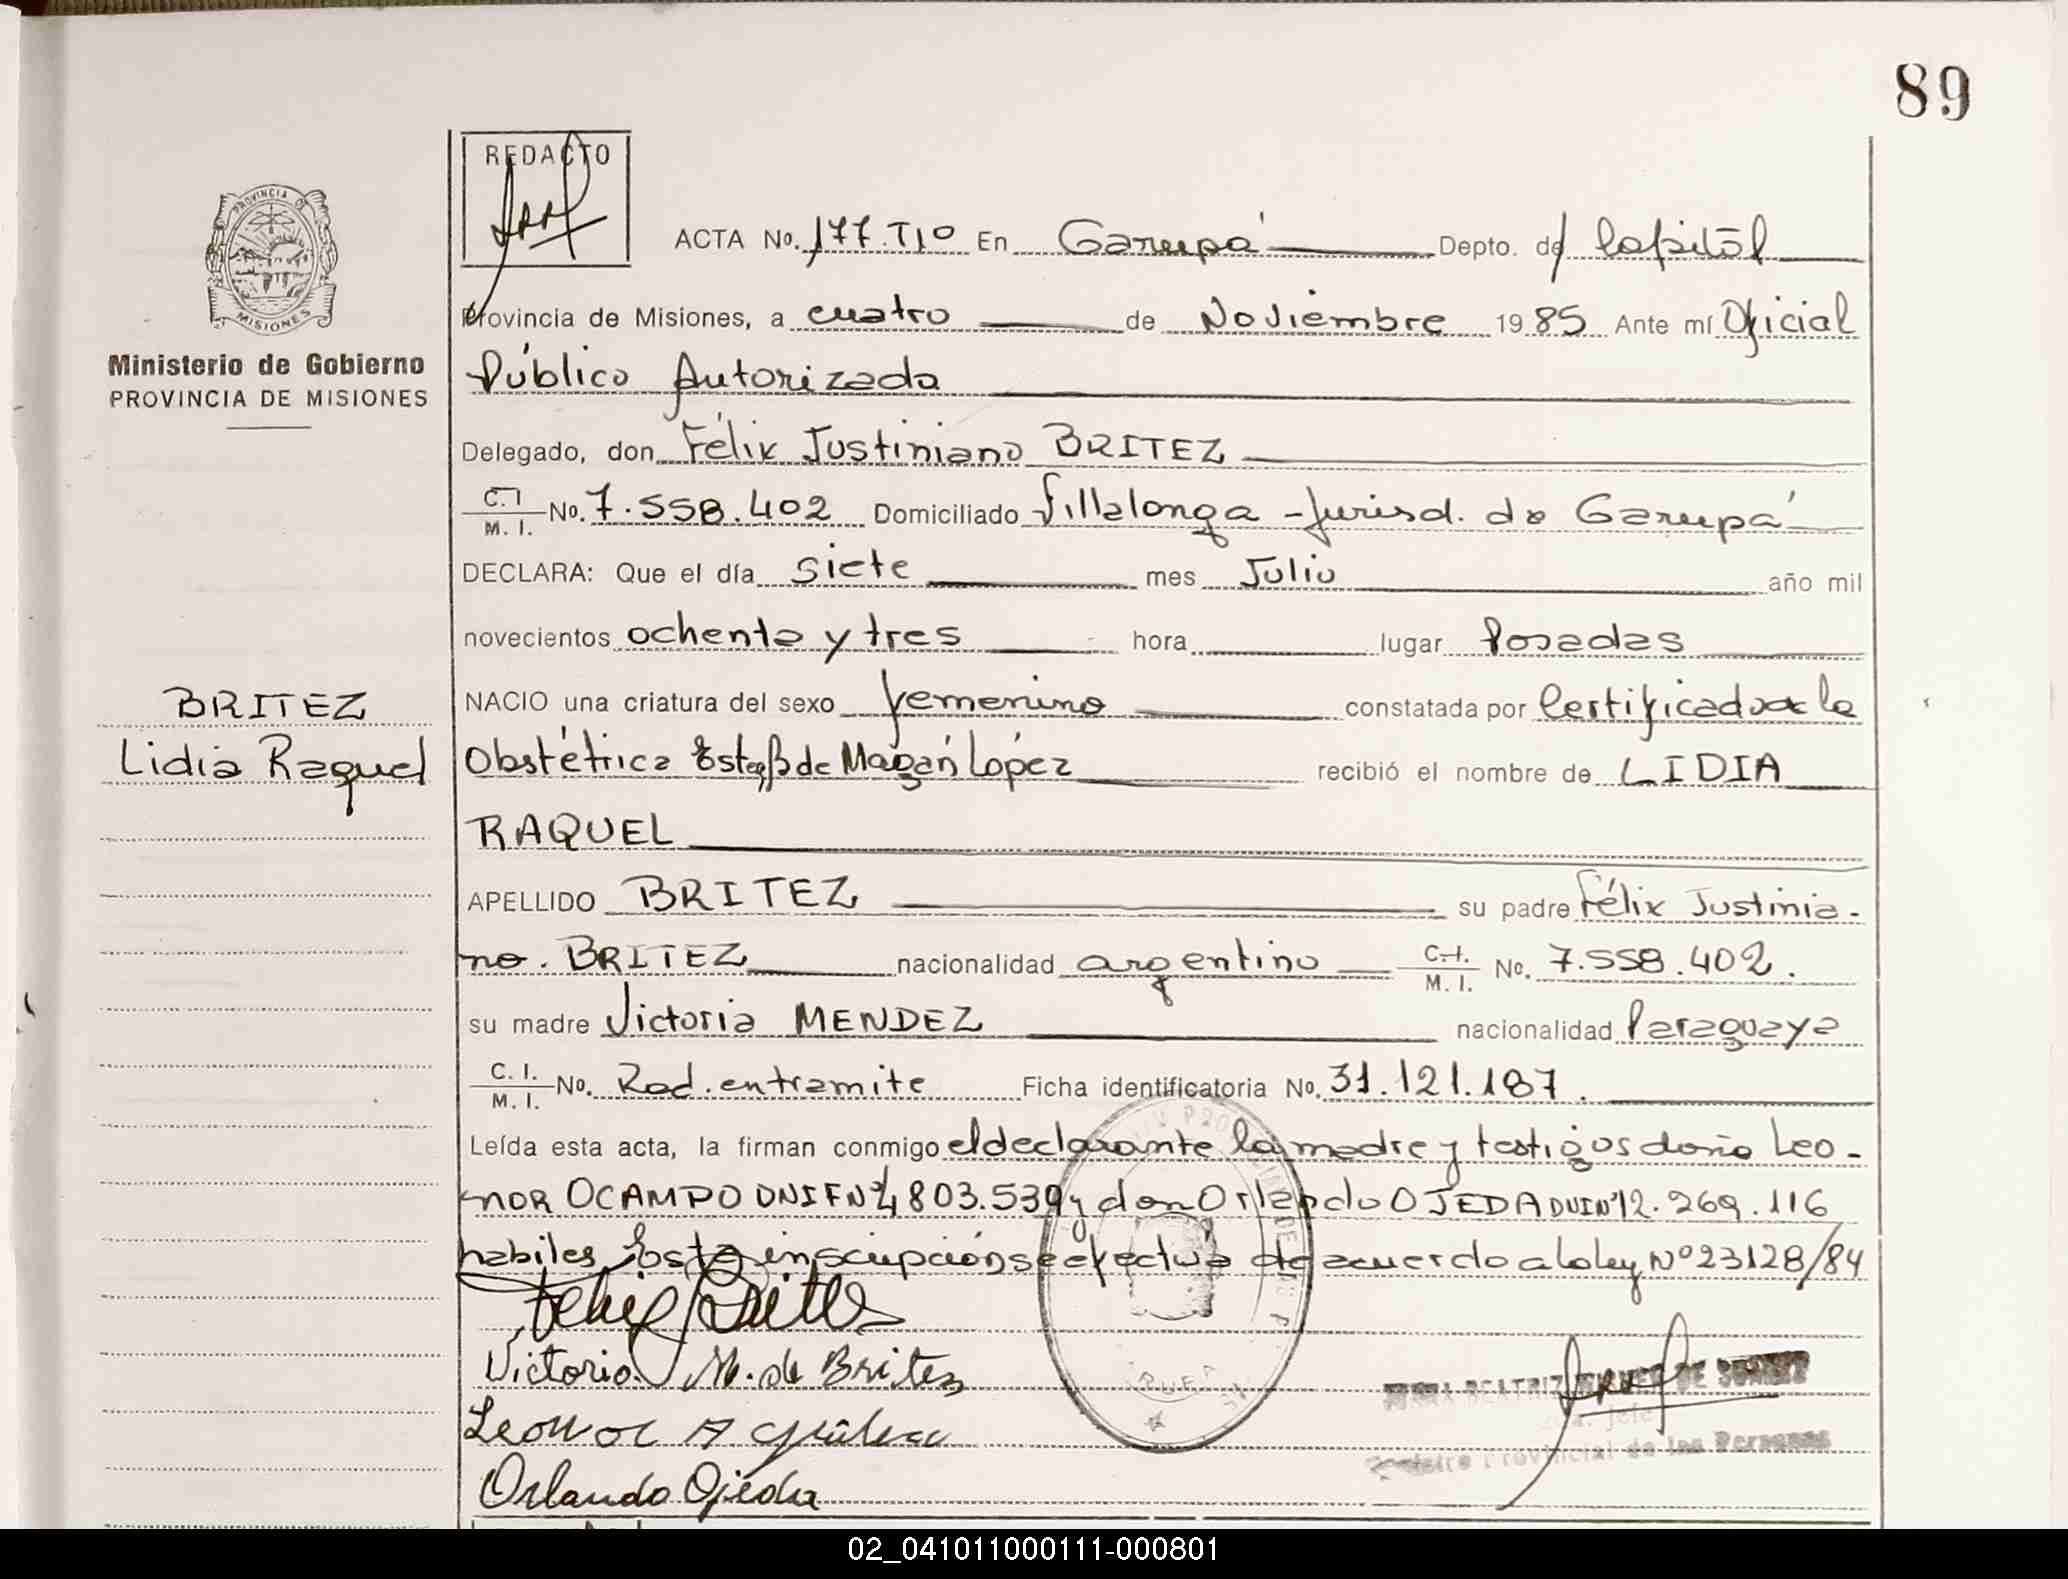 89
REDACTO
ACTA No. 177.TIO En Garupá Depto. de Capital
PROVINCIA DE
MISIONES
Provincia de Misiones, a cuatro de Noviembre 1985 Ante mí Oficial
Ministerio de Gobierno
PROVINCIA DE MISIONES
Público Autorizada
Delegado, don Félix Justiniano BRITEZ
C.I. M. I. No. 7.558.402 Domiciliado Villalonga - Jurisd. de Garupá
DECLARA: Que el día siete mes Julio año mil
novecientos ochenta y tres hora lugar Posadas
BRITEZ
Lidia Raquel
NACIO una criatura del sexo femenino constatada por Certificado de la
Obstétrica de Magán López recibió el nombre de LIDIA
RAQUEL
APELLIDO BRITEZ su padre Félix Justinia-
no. BRITEZ nacionalidad argentino C.I. M. I. No. 7.558.402.
su madre Victoria MENDEZ nacionalidad Paraguaya
C. I. M. I. No. Rad. en tramite Ficha identificatoria No. 31.121.187.
Leída esta acta, la firman conmigo el declarante la madre y testigos doña Leo-
nor OCAMPO DNIFNº 4803.539 y don Orlando OJEDA DNINº12.269.116
habiles Esta inscripción se efectúa de acuerdo a la ley Nº 23128/84
Felix Britez
Victoria M. de Britez
BEATRIZ DE
Leonor A
Jefe
Provincial de las Personas
Orlando Ojeda
02_041011000111-000801